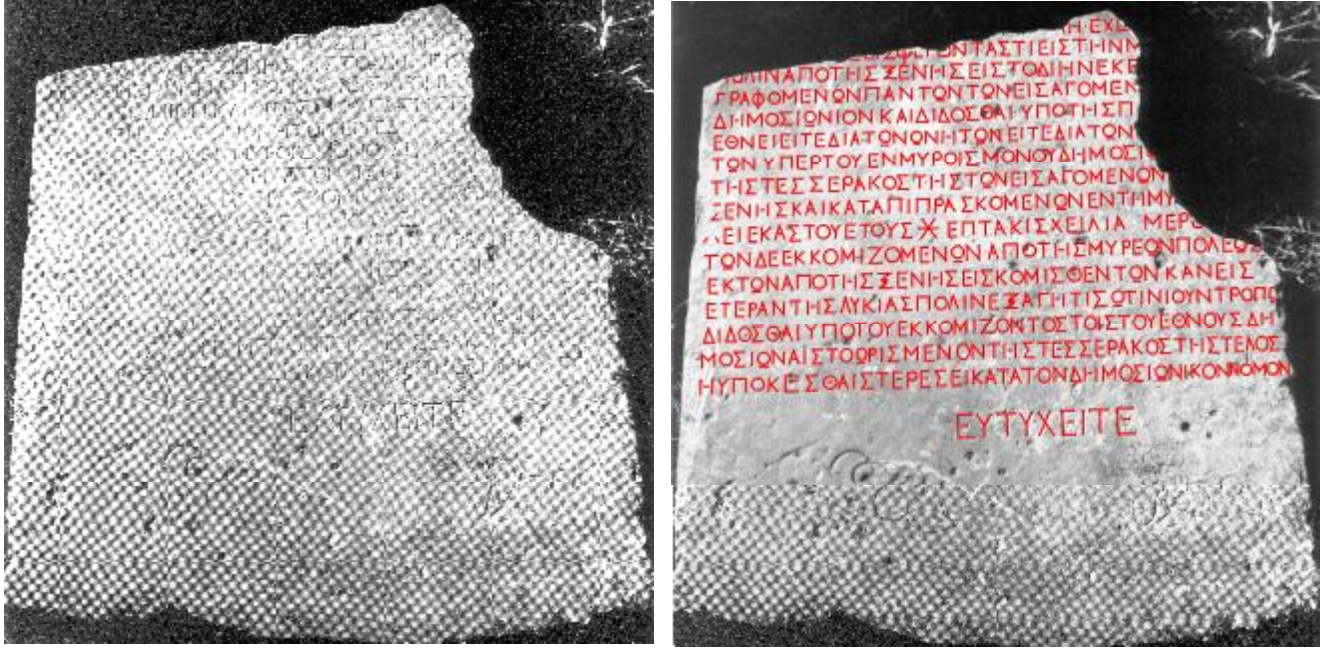 ΤΑΣΤΙΕΙΣΤΗΝΜ
ΑΠΟΤΗΣΞΕΝΗΣΕΙΣΤΟΔΙΗΝΕΚΕ
ΓΡΑΦΟΜΕΝΩΝΠΑΝΤΩΝΤΩΝΕΙΣΑΓΟΜΕΝ
ΔΗΜΟΣΙΩΝΙΟΝΚΑΙΔΙΔΟΣΘΑΙΥΠΟΤΗΣΠ
ΕΘΝΕΙΕΙΤΕΔΙΑΤΩΝΩΝΗΤΩΝΕΙΤΕΔΙΑΤΩΝ
ΤΩΝΥΠΕΡΤΟΥΕΝΜΥΡΟΙΣΜΟΝΟΥΔΗΜΟΣΙ
ΤΗΣΤΕΣΣΕΡΑΚΟΣΤΗΣΤΩΝΕΙΣΑΓΟΜΕΝΩΝ
ΞΕΝΗΣΚΑΙΚΑΤΑΠΙΠΡΑΣΚΟΜΕΝΩΝΕΝΤΗΜΥ
ΕΙΕΚΑΣΤΟΥΕΤΟΥΣ Ӿ ΕΠΤΑΚΙΣΧΕΙΛΙΑ ΜΕΡ
ΤΩΝΔΕΕΚΚΟΜΙΖΟΜΕΝΩΝΑΠΟΤΗΣΜΥΡΕΩΝΠΟΛΕΩΣ
ΕΚΤΩΝΑΠΟΤΗΣΞΕΝΗΣΕΙΣΚΟΜΙΣΘΕΝΤΩΝΚΑΝΕΙΣ
ΕΤΕΡΑΝΤΗΣΛΥΚΙΑΣΠΟΛΙΝΕΞΑΓΗΤΙΣΩΤΙΝΙΟΥΝΤΡΟΠΩ
ΔΙΔΟΣΘΑΙΥΠΟΤΟΥΕΚΚΟΜΙΖΟΝΤΟΣΤΟΙΣΤΟΥΕΘΝΟΥΣΔΗ
ΜΟΣΙΩΝΑΙΣΤΟΩΡΙΣΜΕΝΟΝΤΗΣΤΕΣΣΕΡΑΚΟΣΤΗΣΤΕΛΟΣ
ΗΥΠΟΚΕΣΘΑΙΣΤΕΡΕΣΕΙΚΑΤΑΤΟΝΔΗΜΟΣΙΩΝΙΚΟΝΝΟΜΟΝ
ΕΥΤΥΧΕΙΤΕ